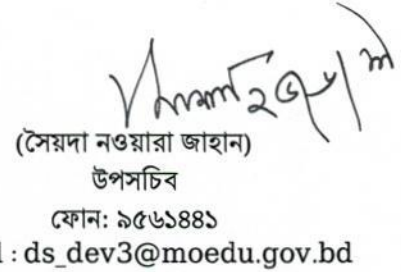 (সৈয়দা নওয়ারা জাহান)
উপসচিব
ফোন: ৯৫৬১৪৪১
: ds_dev3@moedu.gov.bd